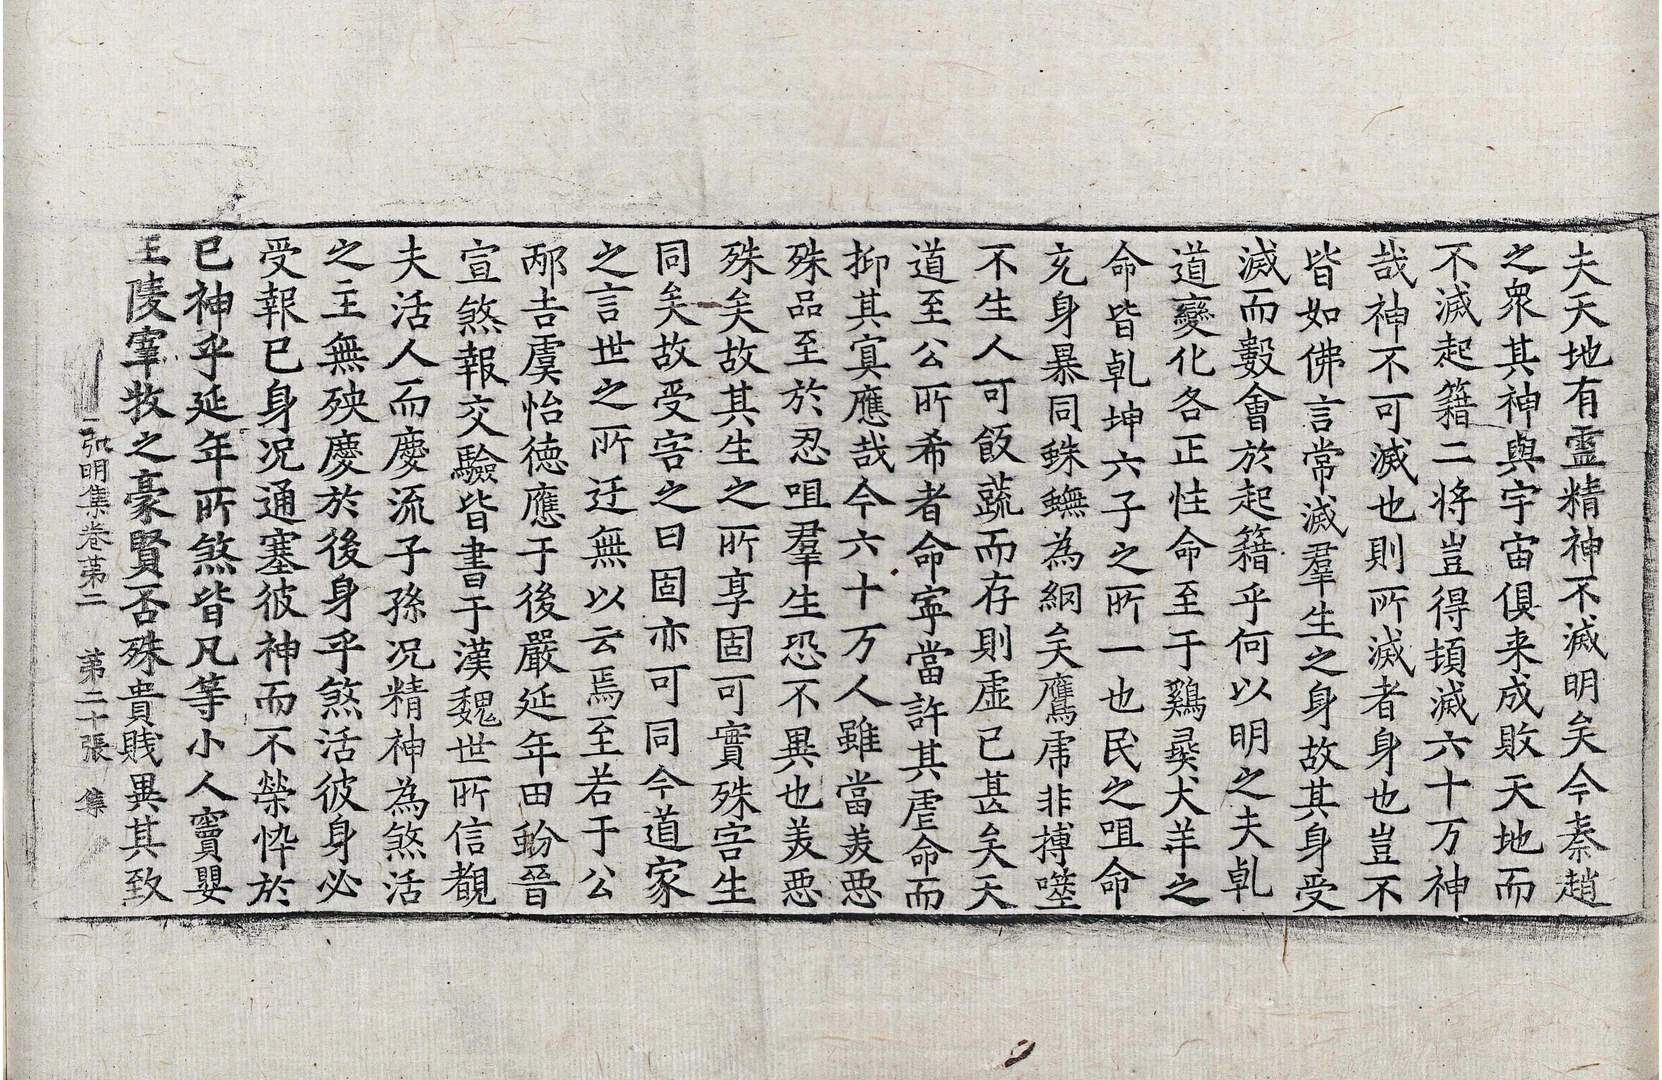 夫天地有靈精神不滅明矣今秦趙
之衆其神與宇宙俱来成敗天地而
不滅起籍二将豈得頓滅六十万神
哉神不可滅也則所滅者身也豈不
皆如佛言常滅羣生之身故其身受
滅而數會於起籍乎何以明之夫乹
道變化各正性命至于鷄彘犬羊之
命皆乹坤六子之所一也民之咀命
充身暴同蛛蟱為網矣鷹虎非搏噬
不生人可飯蔬而存則虐已甚矣天
道至公所希者命寧當許其虐命而
抑其冥應哉今六十万人雖當美惡
殊品至於忍咀羣生恐不異也美惡
殊矣故其生之所享固可實殊害生
同矣故受害之日固亦可同今道家
之言世之所迂無以云焉至若于公
邴吉虞怡德應于後嚴延年田蚡晉
宣煞報交驗皆書于漢魏世所信覩
夫活人而慶流子孫况精神為煞活
之主無殃慶於後身乎煞活彼身必
受報已身况通塞彼神而不榮悴於
已神乎延年所煞皆凡等小人竇嬰
王陵宰牧之豪賢否殊貴賤異其致
弘明集卷苐二　苐二十張　集